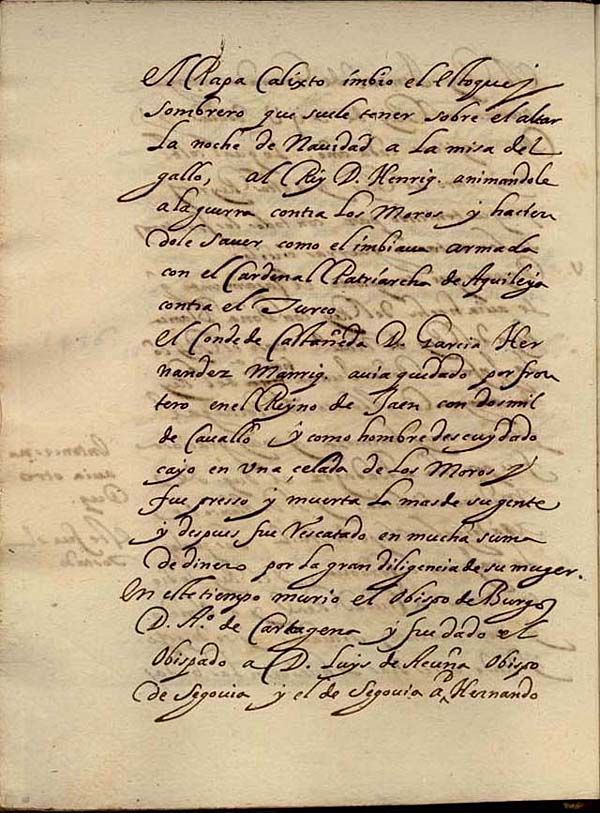 El Papa Calixto imbio el Estoque y
Sombrero que suele tener sobre el altar
La noche de Navidad a La misa del
gallo, al Rey D. Henriq. animandole
a la guerra contra Los Moros y hacien
dole saver como el imbiava armada
con el Cardenal Patriarcha de Aquileya
contra el Turco
El Conde de Castañeda D. Garcia Her
nandez Manriq. avia quedado por fron
tero en el Reyno de Jaen con dos mil
de Cavallo y como hombre descuydado
cayo en una celada de Los Moros y
fue presso y muerta La mas de su gente
y despues fue Rescatado en mucha suma
de dinero por La gran diligencia de su muger.
En este tiempo murio el Obispo de Burgos
D. Aº. de Cartagena y fue dado el
Obispado a D. Luys de Acuña Obispo
de Segovia y el de Segovia a D. Hernando